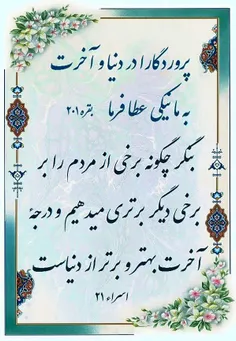 پروردگارا در دنیا و آخرت
به ما نیکی عطا فرما بقره ۲۰۱
بنگر چگونه برخی از مردم را بر
برخی دیگر برتری میدهیم و درجهٔ
آخرت بهتر و برتر از دنیاست
اسراء ۲۱